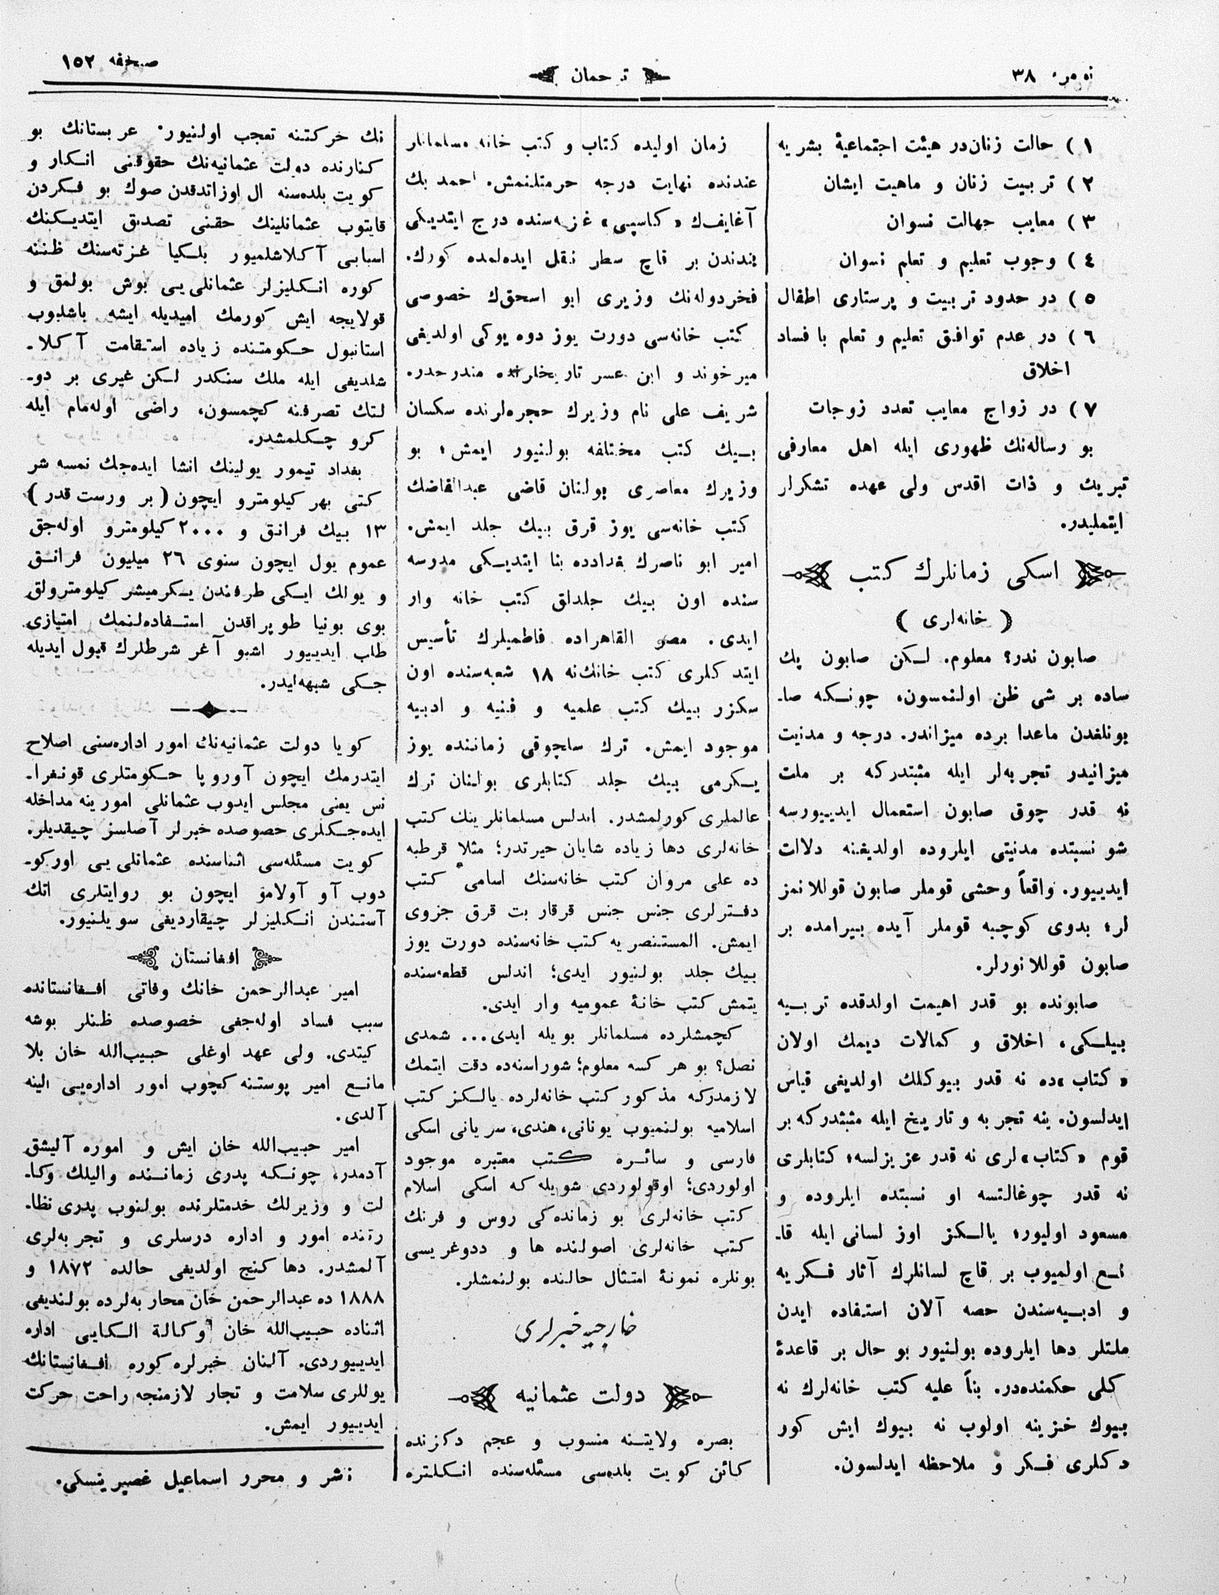 نومرۀ ٣٨
ترجمان
صحیفه ١٥٢
١) حالت زنان در هیئت اجتماعیۀ بشریه
٢) تربیت زنان و ماهیت ایشان
٣) معایب جهالت نسوان
٤) وجوب تعلیم و تعلم نسوان
٥) در حدود تربیت و پرستاری اطفال
٦) در عدم توافق تعلیم و تعلم با فساد
اخلاق
٧) در زواج معایب تعدد زوجات
بو رسالەنك ظهوری ایله اهل معارفی
تبریك و ذات اقدس ولی عهده تشکرار
ایتملیدر.
اسکی زمانلرك کتب
(خانەلری)
صابون ندر؟ معلوم. لـکن صابون پك
ساده بر شی ظن اولنمسون، چونـکه صا۔
بونلغدن ماعدا برده میزاندر. درجه و مدنیت
میزانیدر تجربەلر ایله مثبتدرکه بر ملت
نه قدر چوق صابون استعمال ایدییورسه
شو نسبتده مدنیتی ایلروده اولدیغنه دلالت
ایدییور. واقعاً وحشی قوملر صابون قوللانمز
لر؛ بدوی کوچبه قوملر آیده بیرامده بر
صابون قوللانورلر.
صابونده بو قدر اهیمت اولدقده تربـیه
بیلـکی، اخلاق و کمالات دیمك اولان
«کتاب»ده نه قدر بیوکلك اولدیغی قیاس
ایدلسون. ینه تجربه و تاریخ ایله مثبتدرکه بر
قوم «کتاب»لری نه قدر عزیزلسه؛ کتابلری
نه قدر چوغالتسه او نسبتده ایلروده و
مسعود اولیور؛ یالـکز اوز لسانی ایله قا۔
نـع اولمیوب بر قاچ لسانلرك آثار فـکریه
و ادبـیەسندن حصه آلان استفاده ایدن
ملتلر دها ایلروده بولنیور بو حال بر قاعدۀ
کلی حکمندەدر. بناً علیه کتب خانەلرك نه
بیوك خزینه اولوب نه بیوك ایش کور
دکلری فـکر و ملاحظه ایدلسون.
زمان اولیده کتاب و کتب خانه مسلمانلر
عندنده نهایت درجه حرمتلنمش. احمد بك
آغایف‌ك «کاسپی» غزەسنده درج ایتدیکی
بندندن بر قاچ سطر نقل ایدەلمده کورك.
فخردولەنك وزیری ابو اسحق‌ك خصوصی
کتب خانەسی دورت یوز دوه یوکی اولدیغی
میرخوند و ابن عسر تاریخلرنده مندرجدر.
شریف علی نام وزیرك حجرەلرنده سکسان
بـیك کتب مختلفه بولنیور ایمش؛ بو
وزیرك معاصری بولنان قاضی عبدالقاضك
کتب خانەسی یوز قرق بیك جلد ایمش.
امیر ابو ناصرك بغدادده بنا ایتدیـکی مدرسه
سنده اون بیك جلدلق کتب خانه وار
ایدی. مصر القاهراده فاطمیلرك تأسیس
ایتدکلری کتب خانك‌نه ١٨ شعبەسنده اون
سکزر بیك کتب علمیه و فنیه و ادبیه
موجود ایمش. ترك سلچوقی زماننده یوز
یـکرمی بیك جلد کتابلری بولنان ترك
عالملری کورلمشدر. اندلس مسلمانلرینك کتب
خانەلری دها زیاده شایان حیرتدر؛ مثلا قرطبه
ده علی مروان کتب خانەسنك اسامی کتب
دفـترلری جنس جنس قرقار بت قرق جزوی
ایمش. المستنصریه کتب خانەسنده دورت یوز
بیك جلد بولنیور ایدی؛ اندلس قطعەسنده
یتمش کتب خانۀ عمومیه وار ایدی.
کچمشلرده مسلمانلر بویله ایدی... شمدی
نصل؟ بو هر کسه معلوم؛ شوراسنەده دقت ایتمك
لازمدرکه مذکور کتب خانەلرده یالـکز کتب
اسلامیه بولنمیوب یونانی، هندی، سریانی اسکی
فارسی و سائره کتب معتبره موجود
اولوردی؛ اوقولوردی شویله‌که اسکی اسلام
کتب خانەلری بو زماندەکی روس و فرنك
کتب خانەلری اصولنده ها و ددوغریسی
بونلره نمونۀ امتثال حالنده بولنمشلر.
خارجیه خبرلری
دولت عثمانیه
بصره ولایتـنه منسوب و عجم دکزنده
کائن کویت بلدەسی مسئلەسنده انـکلتره
نك حرکتنه تعجب اولنیور. عربستانك بو
کنارنده دولت عثمانیەنك حقوقنی انـکار و
کویت بلدەسنه ال اوزاتدقدن صوك بو فـکردن
قایتوب عثمانلینك حقنی تصدیق ایتدیـکنك
اسبابی آکلاشلمیور بلـکیا غزتەسنك ظننه
کوره انـکلیزلر عثمانلی‌یی بوش بولمق و
قولایجه ایش کورمك امیدیله ایشه باشلیوب
استانبول حـکومتنده زیاده استقامت آکلا۔
شلدیغی ایله ملك سنکدر لـکن غیری بر دو۔
لتك تصرفنه کچمسون، راضی اولەمام ایله
کرو چـکلمشدر.
بغداد تیمور یولینك انشا ایدەجك نمسه شر
کتی بهر کیلومترو ایچون (بر ورست قدر)
١٣ بیك فرانق و ٢٠٠٠ کیلومترو اولەجق
عموم یول ایچون سنوی ٢٦ میلیون فرانـق
و یولك ایـکی طرفندن یـکرمیشر کیلومترولق
بوی بونیا طوپراقدن استـفادەلنمك امتیازی
طلب ایدییور اشبو آغر شرطلرك قبول ایدیله
جـکی شبهەلیدر.
کویا دولت عثمانیەنك امور ادارەسنی اصلاح
ایتدرمك ایچون آوروپا حـکومتلری قونفرا۔
نس یعنی مجلس ایدوب عثمانلی امورینه مداخله
ایدەجـکلری حصوصده خبرلر آصلسز چیقدیلر.
کویت مسئلەسی اثناسنده عثمانلی‌یی اورکو۔
دوب آو آولامق ایچون بو روایتلری اتك
آستندن انـکلیزلر چیقاردیغی سویلنیور.
افغانستان
امیر عبدالرحمن خانك وفاتی افـغانستانده
سبب فساد اولەجغی خصوصده ظنلر بوشه
کیتدی. ولی عهد اوغلی حبیب‌الله خان بلا
مانـع امیر پوستنه کچوب امور ادارەیی الینه
آلدی.
امیر حبیب‌الله خان ایش و اموره آلیشق
آدمدر، چونـکه پدری زماننده والیلك وکا۔
لت و وزیرلك خدمتلرنده بولنوب پدری نظا۔
رتنده امور و اداره درسلری و تجربەلری
آلمشدر. دها کنج اولدیغی حالده ١٨٧٢ و
١٨٨٨ ده عبدالرحمن خان محاربەلرده بولندیغی
اثناده حبیب‌الله خان وکالة الـکایی اداره
ایدییوردی. آلنان خبرلره کوره افـغانستانك
یوللری سلامت و تجار لازمنجه راحت حرکت
ایدییور ایمش.
ناشر و محرر اسماعیل غصپرینسکی.